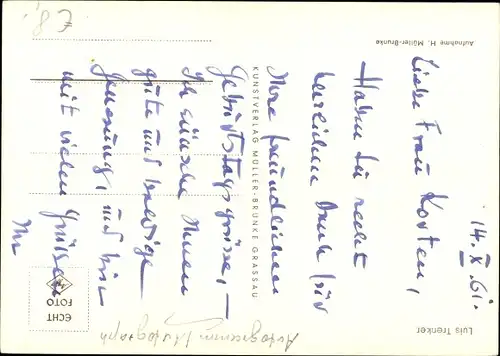 14. X. 61.
Liebe Frau Kosten,
Haben Sie recht
herzlichen Dank für
Ihre freundlichen
Geburtstagsgrüsse, —
Ich wünsche Ihnen
gute und baldige
Genesung, und bin
mit vielen Grüßen
Ihr
Luis Trenker
Aufnahme H. Müller-Brunke
KUNSTVERLAG MÜLLER-BRUNKE GRASSAU
ECHT
FOTO
Autogramm / Autograph